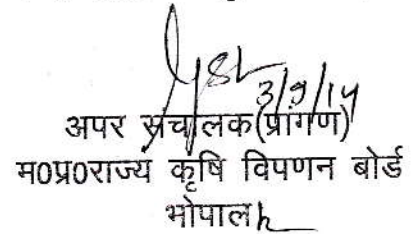 3/9/14
अपर संचालक(प्रांगण)
म0प्र0राज्य कृषि विपणन बोर्ड
भोपाल